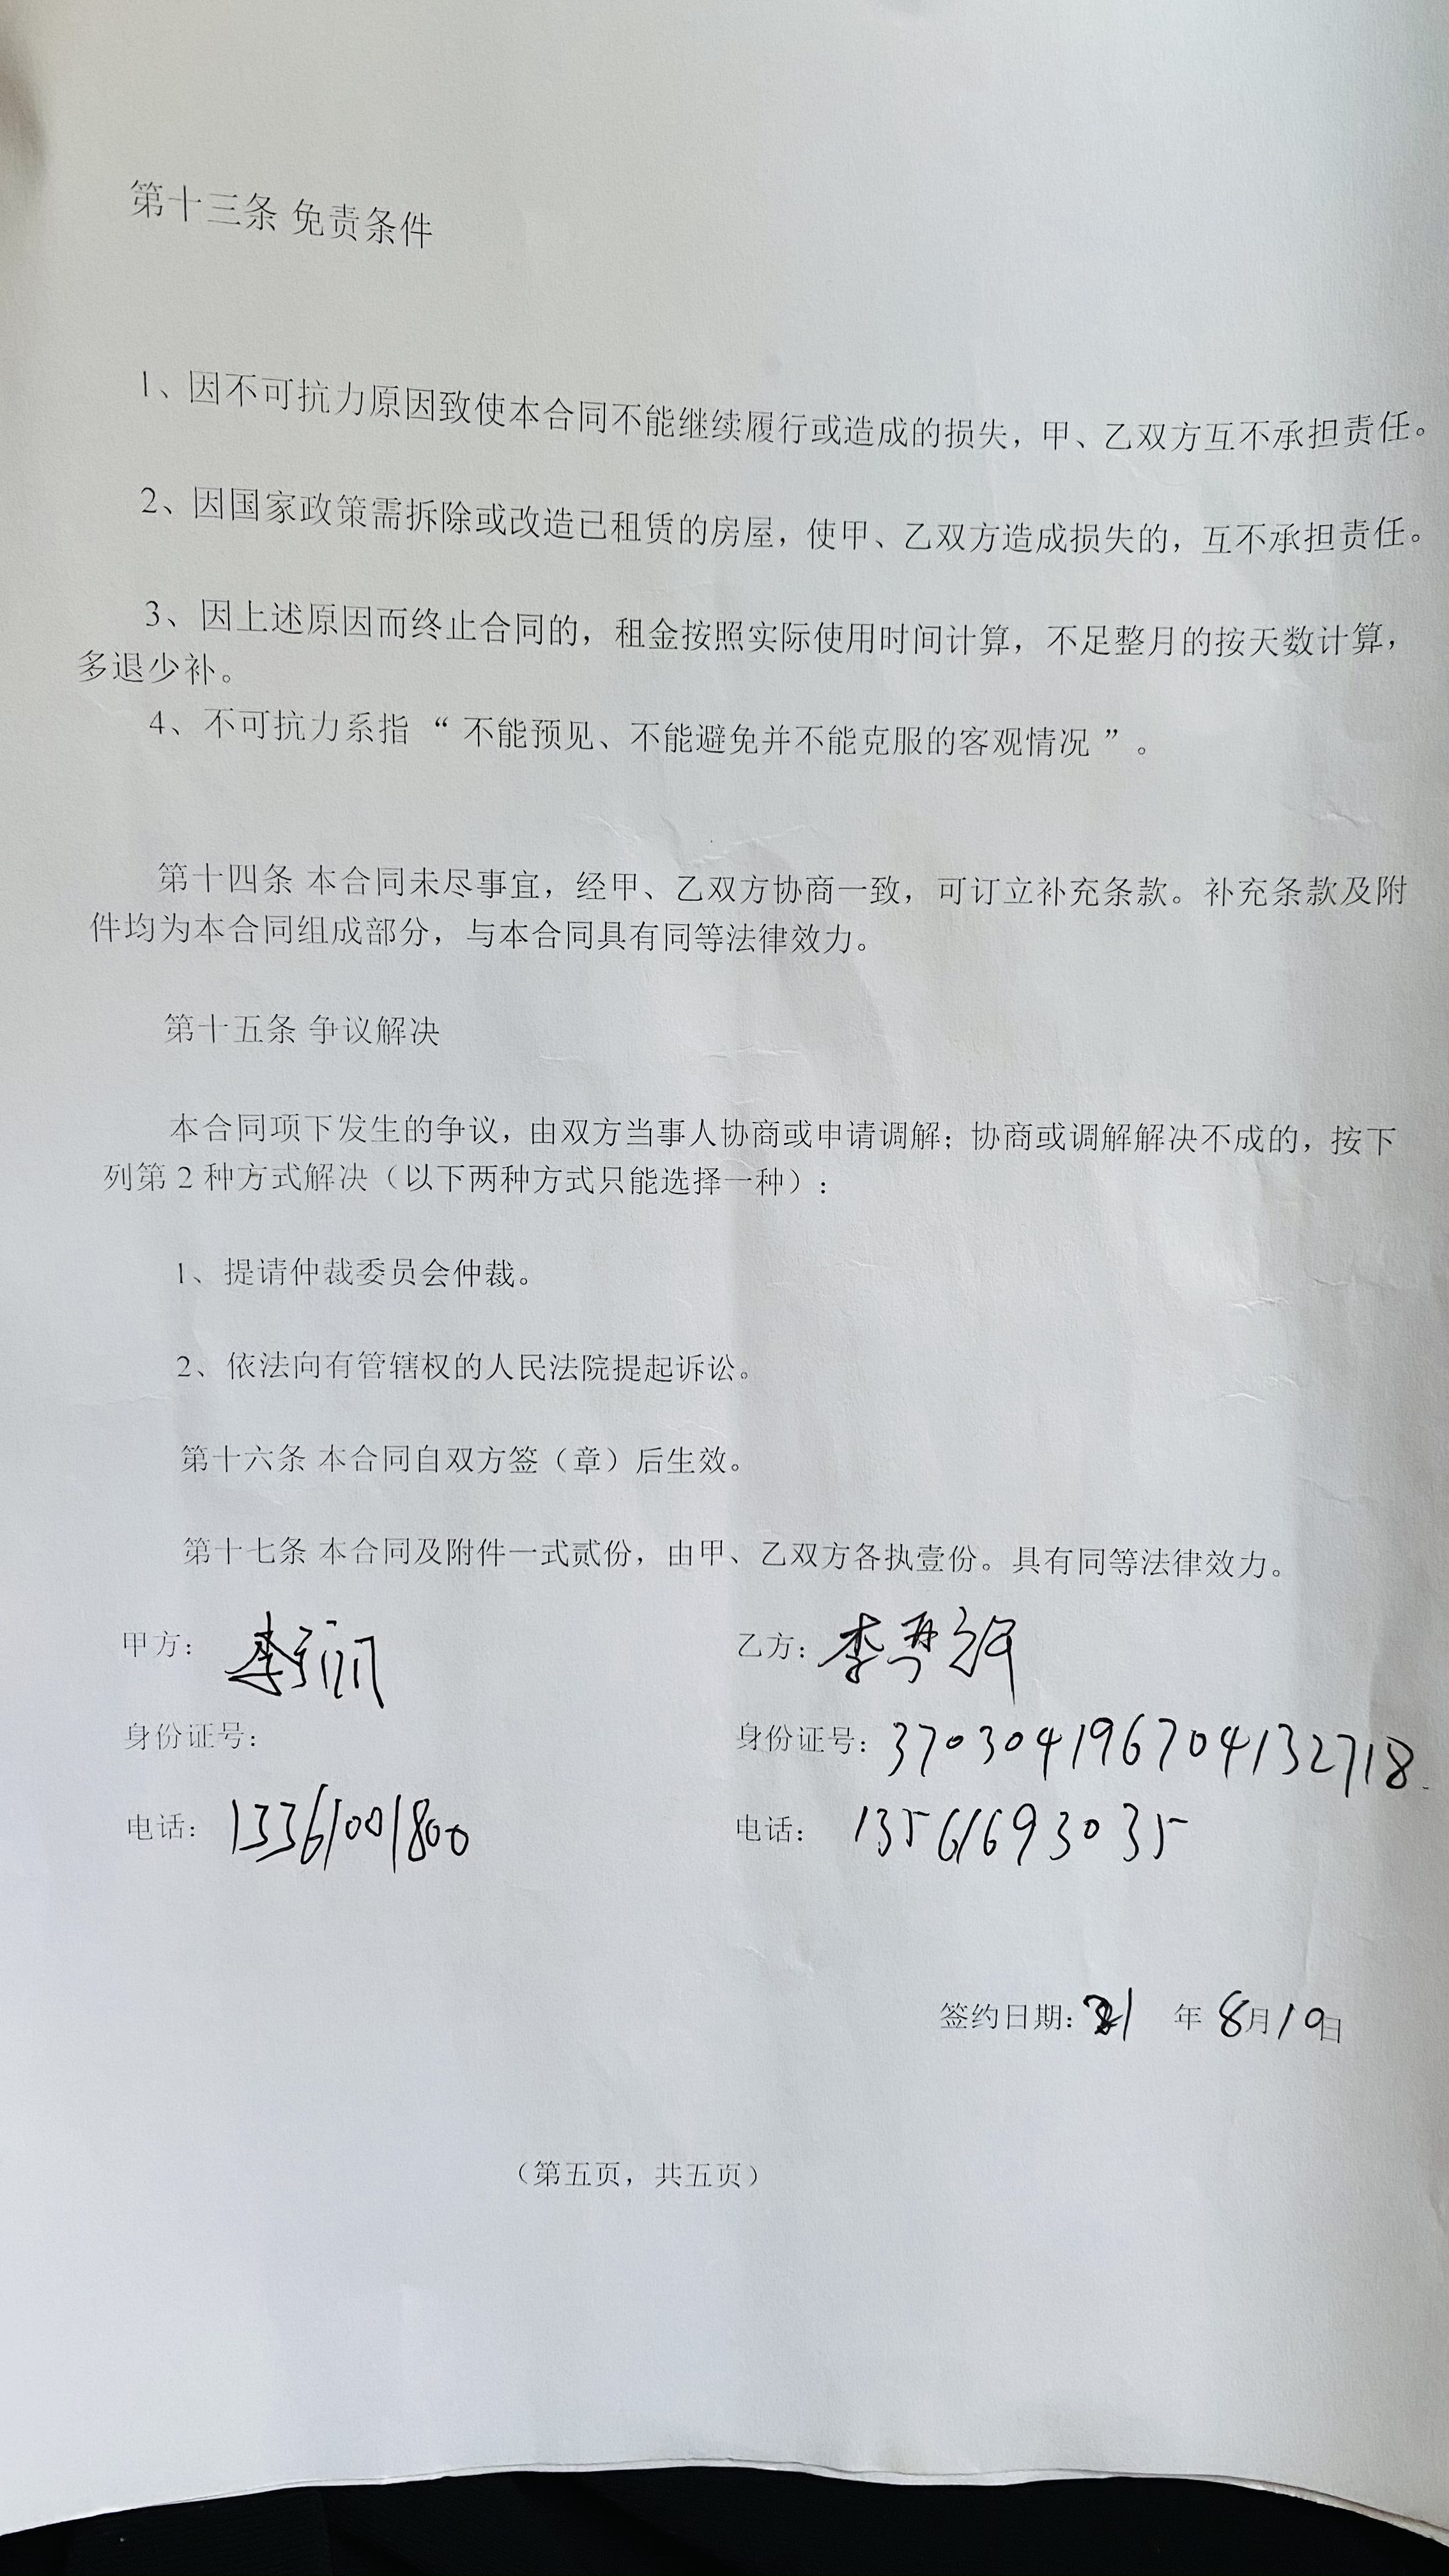 第十三条 免责条件
1、因不可抗力原因致使本合同不能继续履行或造成的损失，甲、乙双方互不承担责任。
2、因国家政策需拆除或改造已租赁的房屋，使甲、乙双方造成损失的，互不承担责任。
3、因上述原因而终止合同的，租金按照实际使用时间计算，不足整月的按天数计算，
多退少补。
4、不可抗力系指 “ 不能预见、不能避免并不能克服的客观情况 ” 。
第十四条 本合同未尽事宜，经甲、乙双方协商一致，可订立补充条款。补充条款及附
件均为本合同组成部分，与本合同具有同等法律效力。
第十五条 争议解决
本合同项下发生的争议，由双方当事人协商或申请调解；协商或调解解决不成的，按下
列第 2 种方式解决（以下两种方式只能选择一种）：
1、提请仲裁委员会仲裁。
2、依法向有管辖权的人民法院提起诉讼。
第十六条 本合同自双方签（章）后生效。
第十七条 本合同及附件一式贰份，由甲、乙双方各执壹份。具有同等法律效力。
甲方： 李 乙方：李
身份证号： 身份证号：370304196704132718
电话：13361001800 电话：13561693035
签约日期： 年 8月10日
（第五页，共五页）